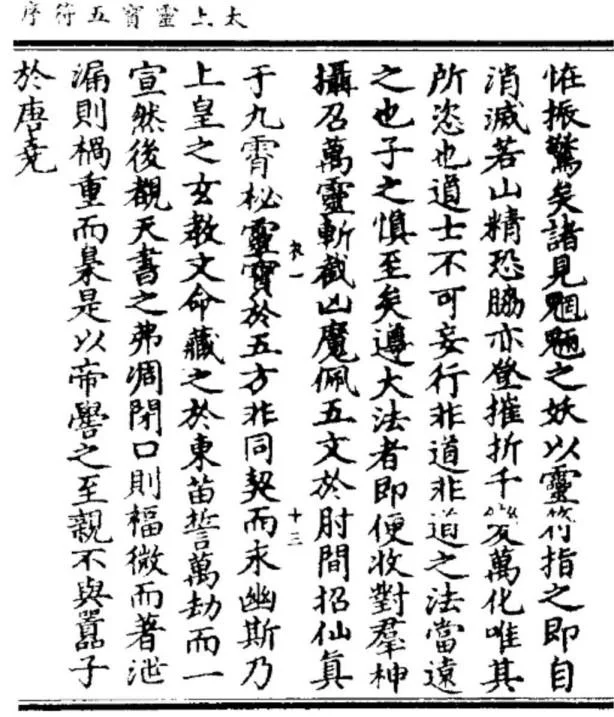 太上靈寶五符序
恠振驚矣諸見魍魎之妖以靈符指之即自
消滅若山精恐脇亦登摧折千變萬化唯其
所恣也道士不可妄行非道非道之法當遠
之也子之慎至矣遵大法者即便收對羣神
攝召萬靈斬截凶魔佩五文於肘間招仙真
十三
于九霄秘靈寶於五方非同契而求幽斯乃
上皇之玄教文命藏之於東苗誓萬劫而一
宣然後觀天書之弗凋閉口則福微而著泄
漏則禍重而臮是以帝嚳之至親不與嚚子
於唐堯